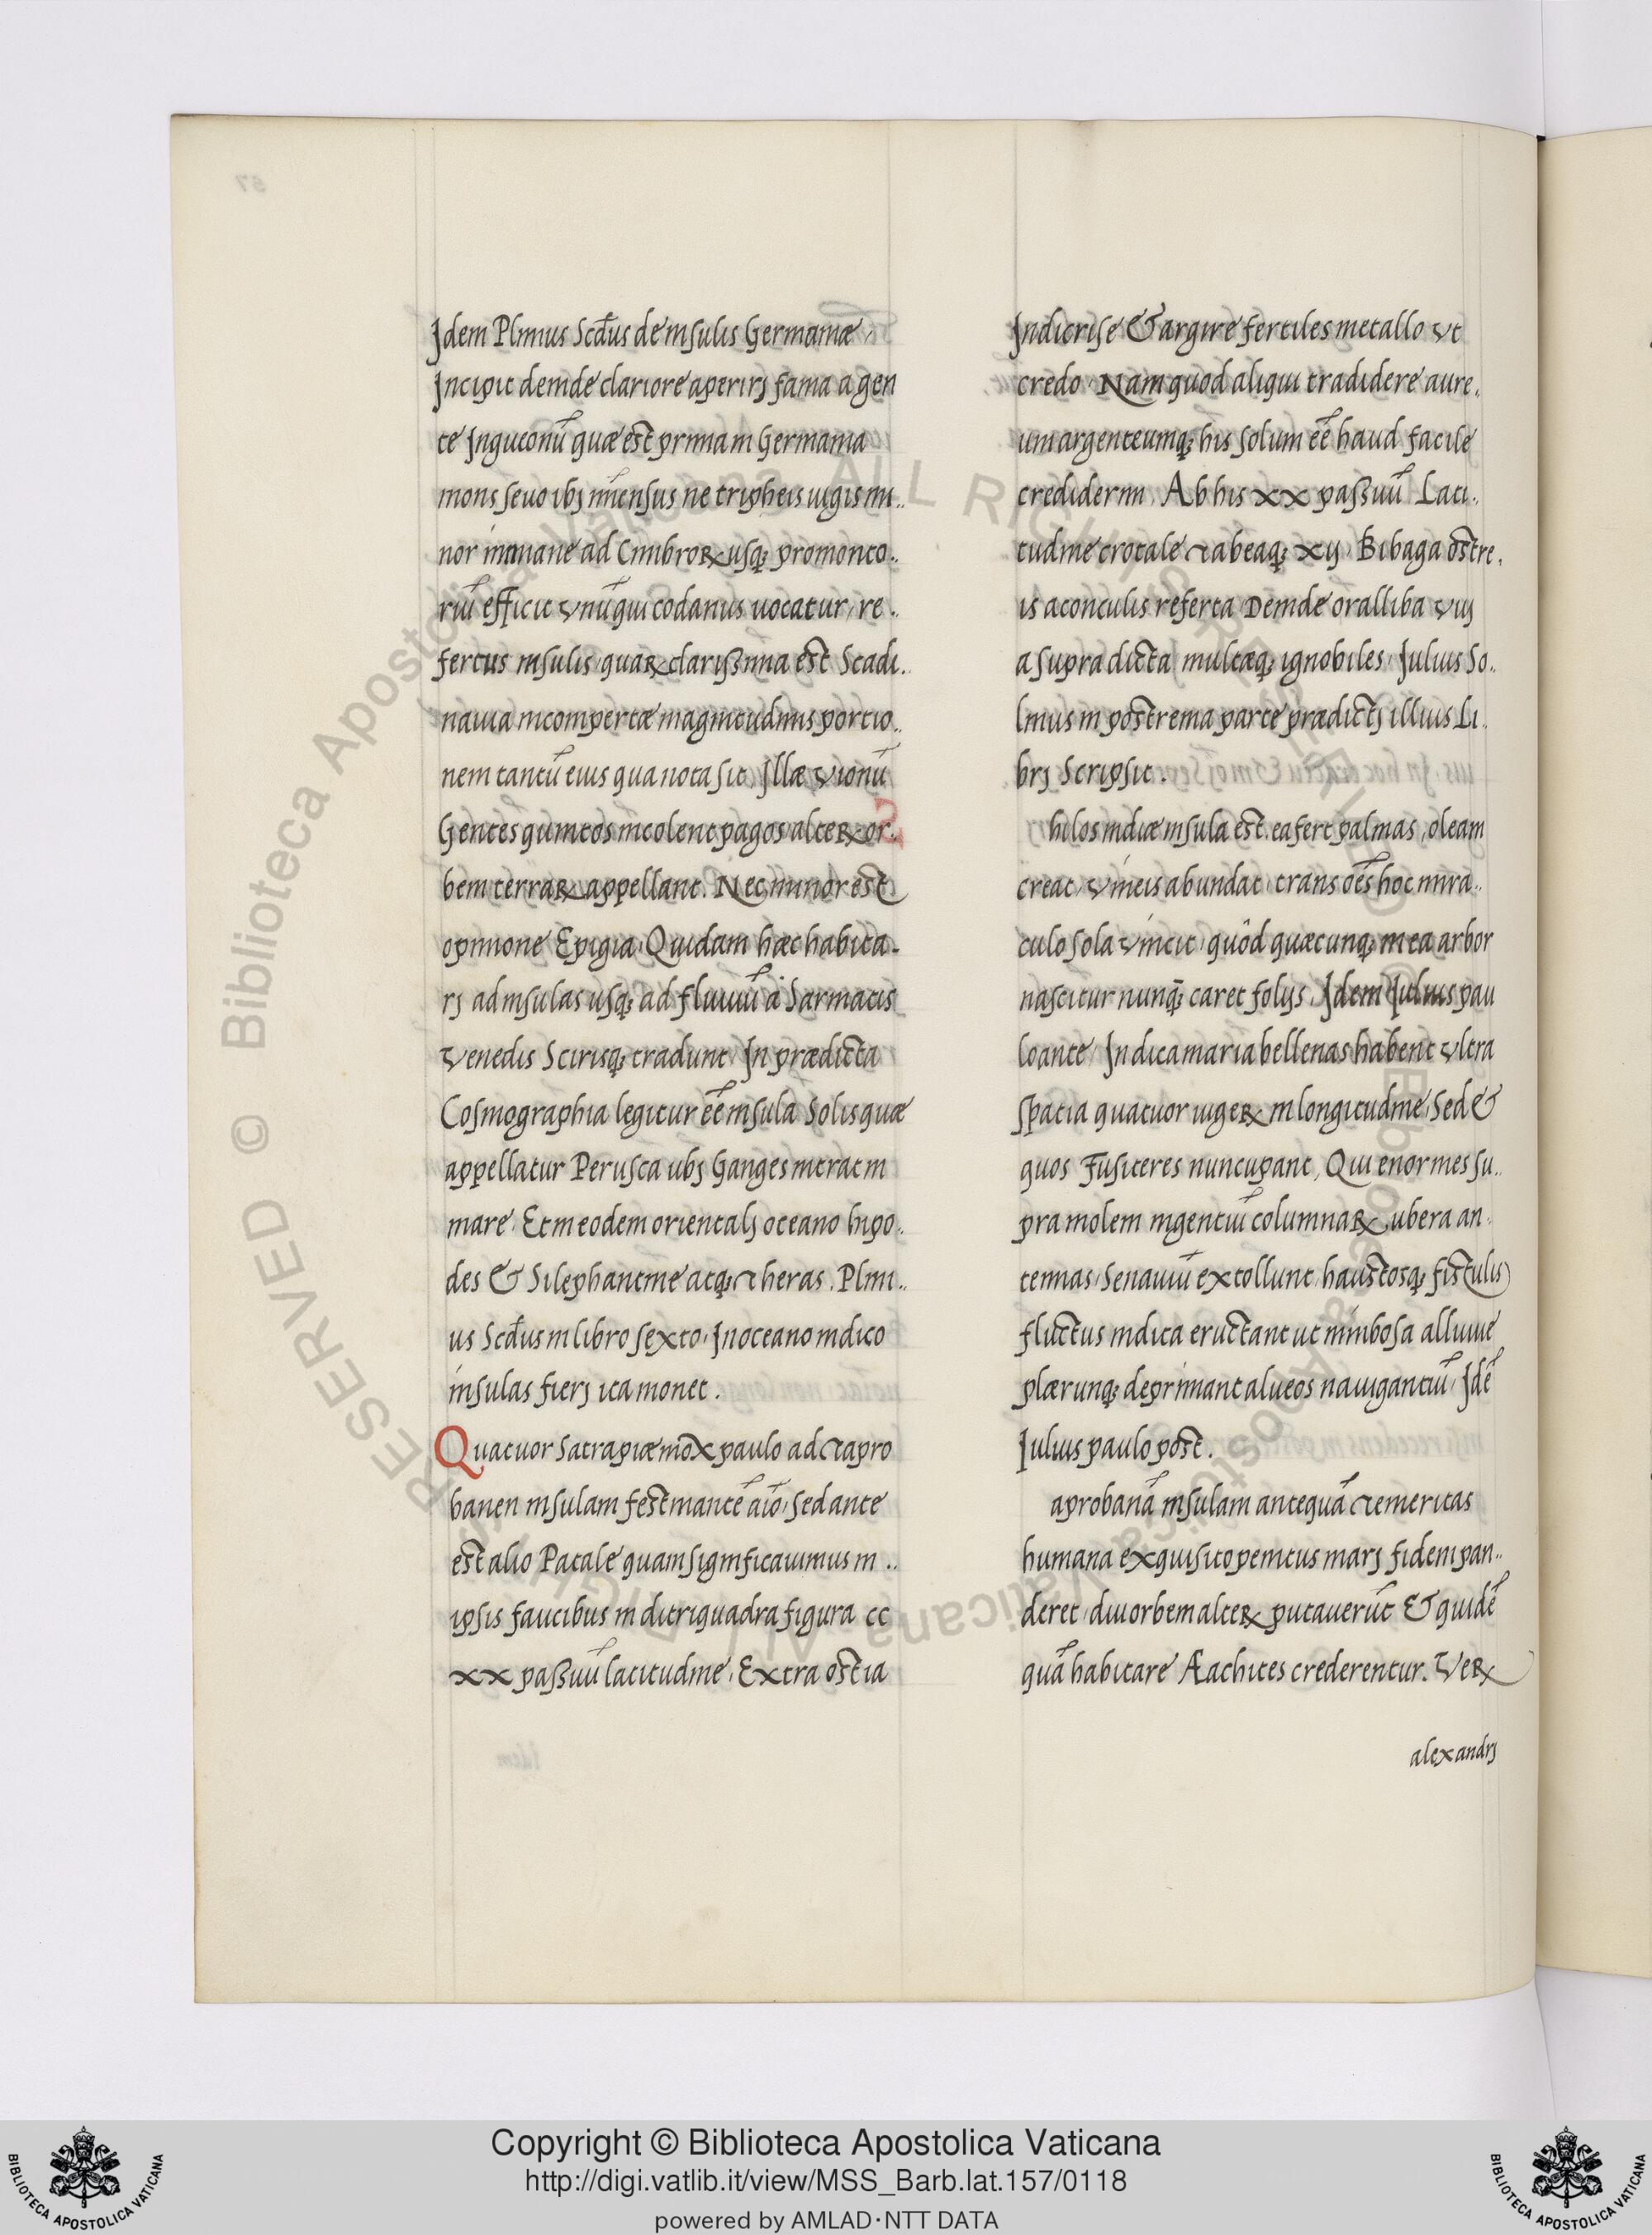 Idem Plinius Scd̄us de insulis Germaniæ
Incipit deinde clariore aperirj fama a gen
te Ingueonū quæ est prima in Germania
mons seuo ibj īmensus ne tripheis iugis mi..
nor inmane ad Cimbroꝝ usq; promonto..
riū efficit Vnū qui codanus uocatur, re..
fertus insulis quaꝝ clarißima est Scadi..
nauia incompertæ magnitudinis portio..
nem tantū eius qua nota sit, Illæ Vionū
Gentes quintos incolent pagos alteꝝ or..
bem terraꝝ appellant. Nec minor est
opinione Epigia, Quidam hæc habita..
rj ad insulas usq; ad fluuiū á Sarmatis
Venedis Scirisq; tradunt, In prædicta
Cosmographia legitur eē insula Solis quæ
appellatur Perusta ubj Ganges intrat in
mare, Et in eodem orientalj oceano hipo..
des & Silephantine atq; Theras. Plini..
us Scd̄us in libro sexto, In oceano indico
insulas fierj ita monet.
Quatuor Satrapiæ mox paulo ad Tapro
banen insulam festinantē aīo, sed ante
est alio Patale quam significauimus in..
ipsis faucibus indi triquadra figura cc
xx paßuū latitudine, Extra ostia
Indi crise & argire fertiles metallo Vt
credo, Nam quod aliqui tradidere aure..
um argenteumq; his solum eē haud facile
crediderim, Ab his xx paßuū Lati..
tudine crotale Tabeaq; xij, Bibaga ostre..
is aconculis referta Deinde oralliba Viij
a supra dicta multæq; ignobiles, Iulius So..
linus in postrema parte prædictj illius Li..
brj Scripsit.
hilos indiæ insula est, ea fert palmas, oleam
creat, Vineis abundat, trans oēs hoc mira..
culo sola Vincit, quôd quæcunq; in ea arbor
nascitur nunq̄; caret folijs, Idem Iulius pau
lo ante, Indica maria bellenas habent Vltra
spatia quatuor iugeꝝ in longitudine, Sed &
quos Fusiteres nuncupant, Qui enormes su..
pra molem ingentiū columnaꝝ ubera an..
tennas, Se nauiū extollunt, haustosq; fistulis
fluctus indica eructant ut nimbosa alluuie
plærunq; deprimant alueos nauigantiū, Idē
Iulius paulo post.
aprobanā insulam antequā Temeritas
humana exquisito penitus marj fidem pan..
deret, diu orbem alteꝝ putauerūt & quidē
quā habitare Æachites crederentur. Veꝝ
alexandrj
Copyright © Biblioteca Apostolica Vaticana
http://digi.vatlib.it/view/MSS_Barb.lat.157/0118
powered by AMLAD·NTT DATA